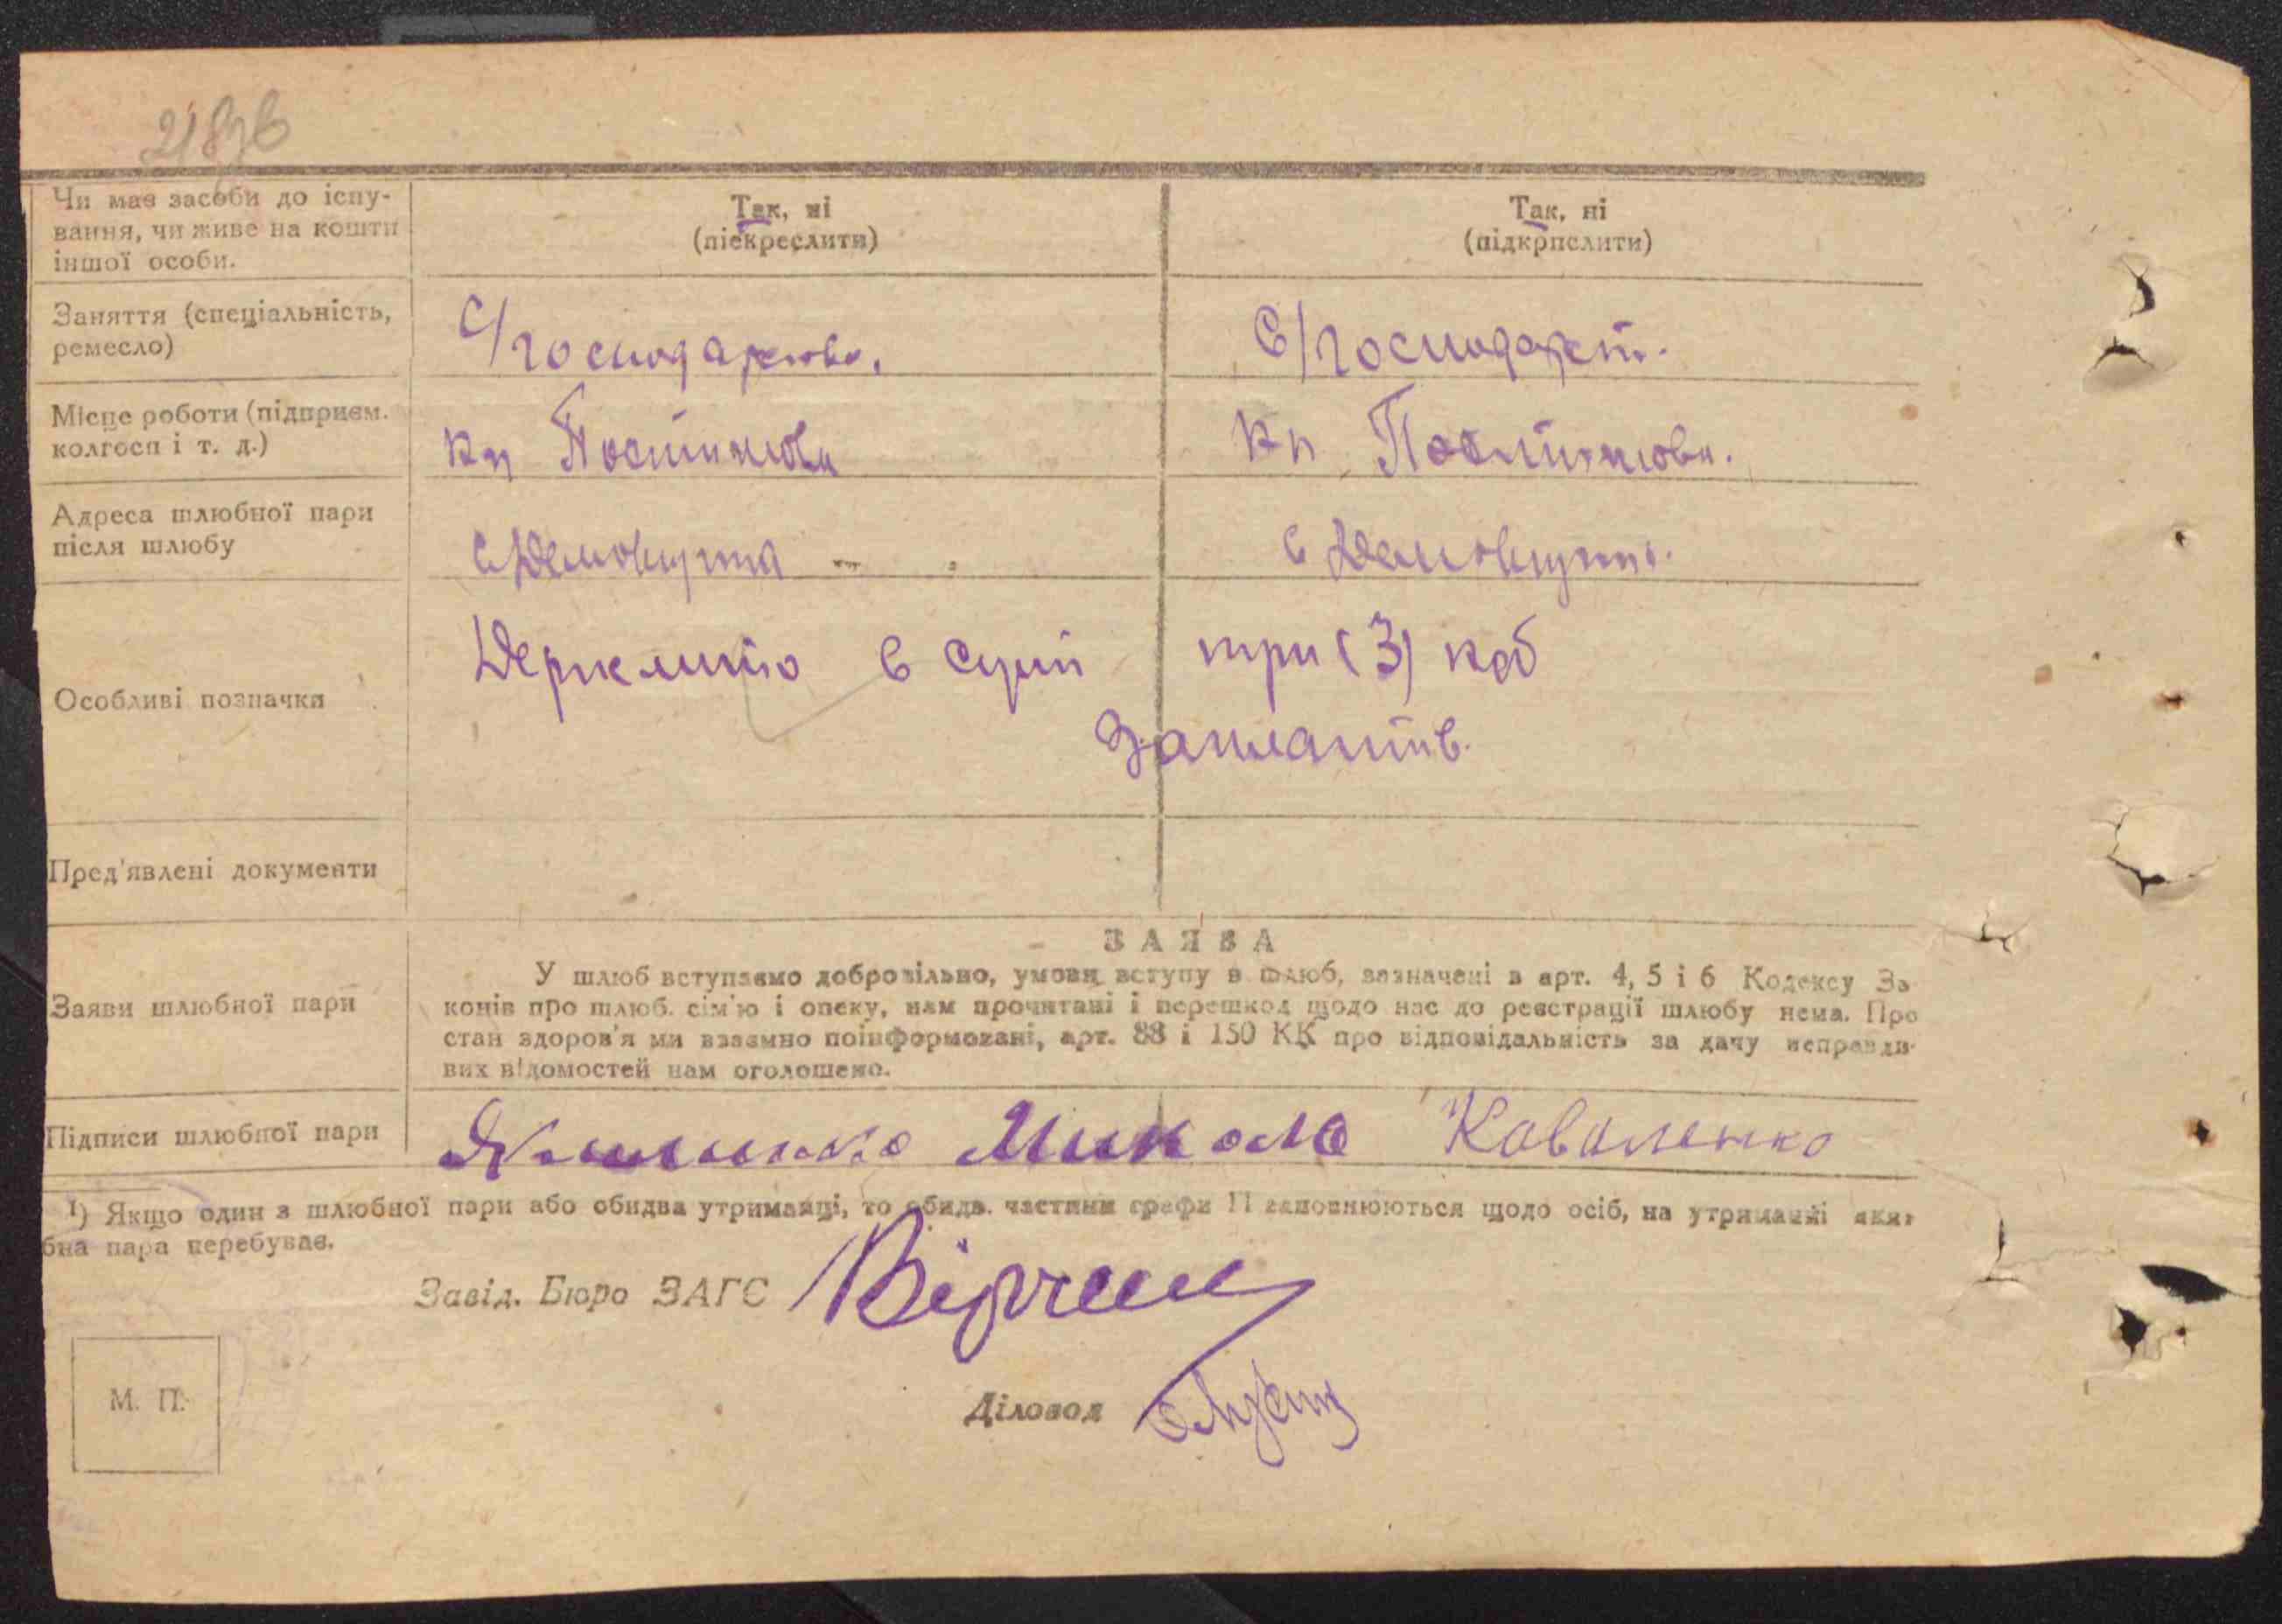 Чи має засоби до існу-
вання, чи живе на кошти
іншої особи.
Так, ні
(піекреслити)
Так, ні
(підкрпслити)
Заняття (спеціальність,
ремесло)
С/господарство.
С/господарст.
Місце роботи (підприєм.
колгосп і т. д.)
кп Постишова
кп Постишова.
Адреса шлюбної пари
після шлюбу
с
с
Особливі позначки
Держмито в сумі три (3) карб
заплатив.
Пред'явлені документи
ЗАЯВА
Заяви шлюбної пари
У шлюб вступаємо добровільно, умови вступу в шлюб, зазначені в арт. 4, 5 і 6 Кодексу За
конів про шлюб. сім'ю і опеку, нам прочитані і перешкод щодо нас до реєстрації шлюбу нема. Про
стан здоров'я ми взаємно поінформовані, арт. 88 і 150 КК про відповідальність за дачу неправди-
вих відомостей нам оголошено.
Підписи шлюбної пари
Микола Коваленко
1) Якщо один з шлюбної пари або обидва утриманці, то обидв. частини графи 11 заповнюються щодо осіб, на утриманні яких
бна пара перебуває.
Завід. Бюро ЗАГС
Діловод
М. П.